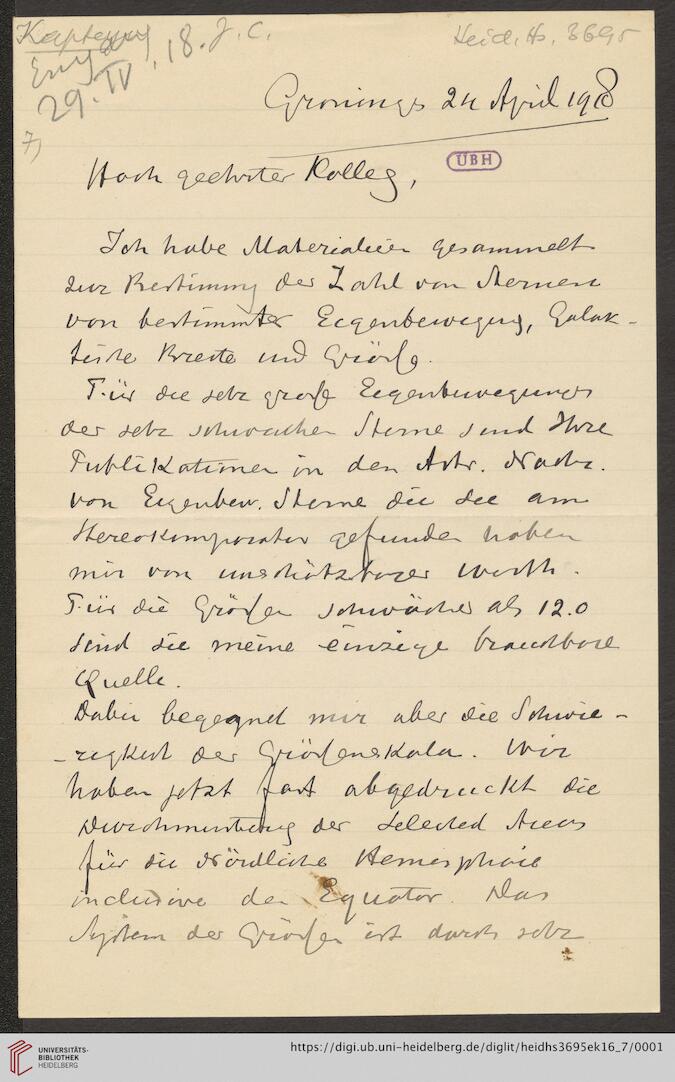 Kapteyn
18. J. C.
Heid. Hs. 3695
29. IV
7)
Groningen 24 April 1918
UBH
Hoch geehrter Kolleg,
Ich habe Materialien gesammelt
zur Bestimmung der Zahl von Sternen
von bestimmter Eigenbewegung, Galak-
tische Breite und Grösse.
Für die sehr grosse Eigenbewegungen
der sehr schwachen Sterne sind Ihre
Publikationen in den Astr. Nachr.
von Eigenbew. Sterne die Sie am
Stereokomparator gefunden haben
mir von unschätzbarer Werth.
Für die Grössen schwächer als 12.0
sind sie meine einzige brauchbare
Quelle.
Dabei begegnet mir aber die Schwie-
-rigkeit der Grössenskala. Wir
haben jetzt fast abgedruckt die
Durchmusterung der Selected Areas
für die Nördliche Hemisphäre
inclusive den Equator. Das
System der Grössen ist durch sehr
UNIVERSITÄTS-
BIBLIOTHEK
HEIDELBERG
https://digi.ub.uni-heidelberg.de/diglit/heidhs3695ek16_7/0001